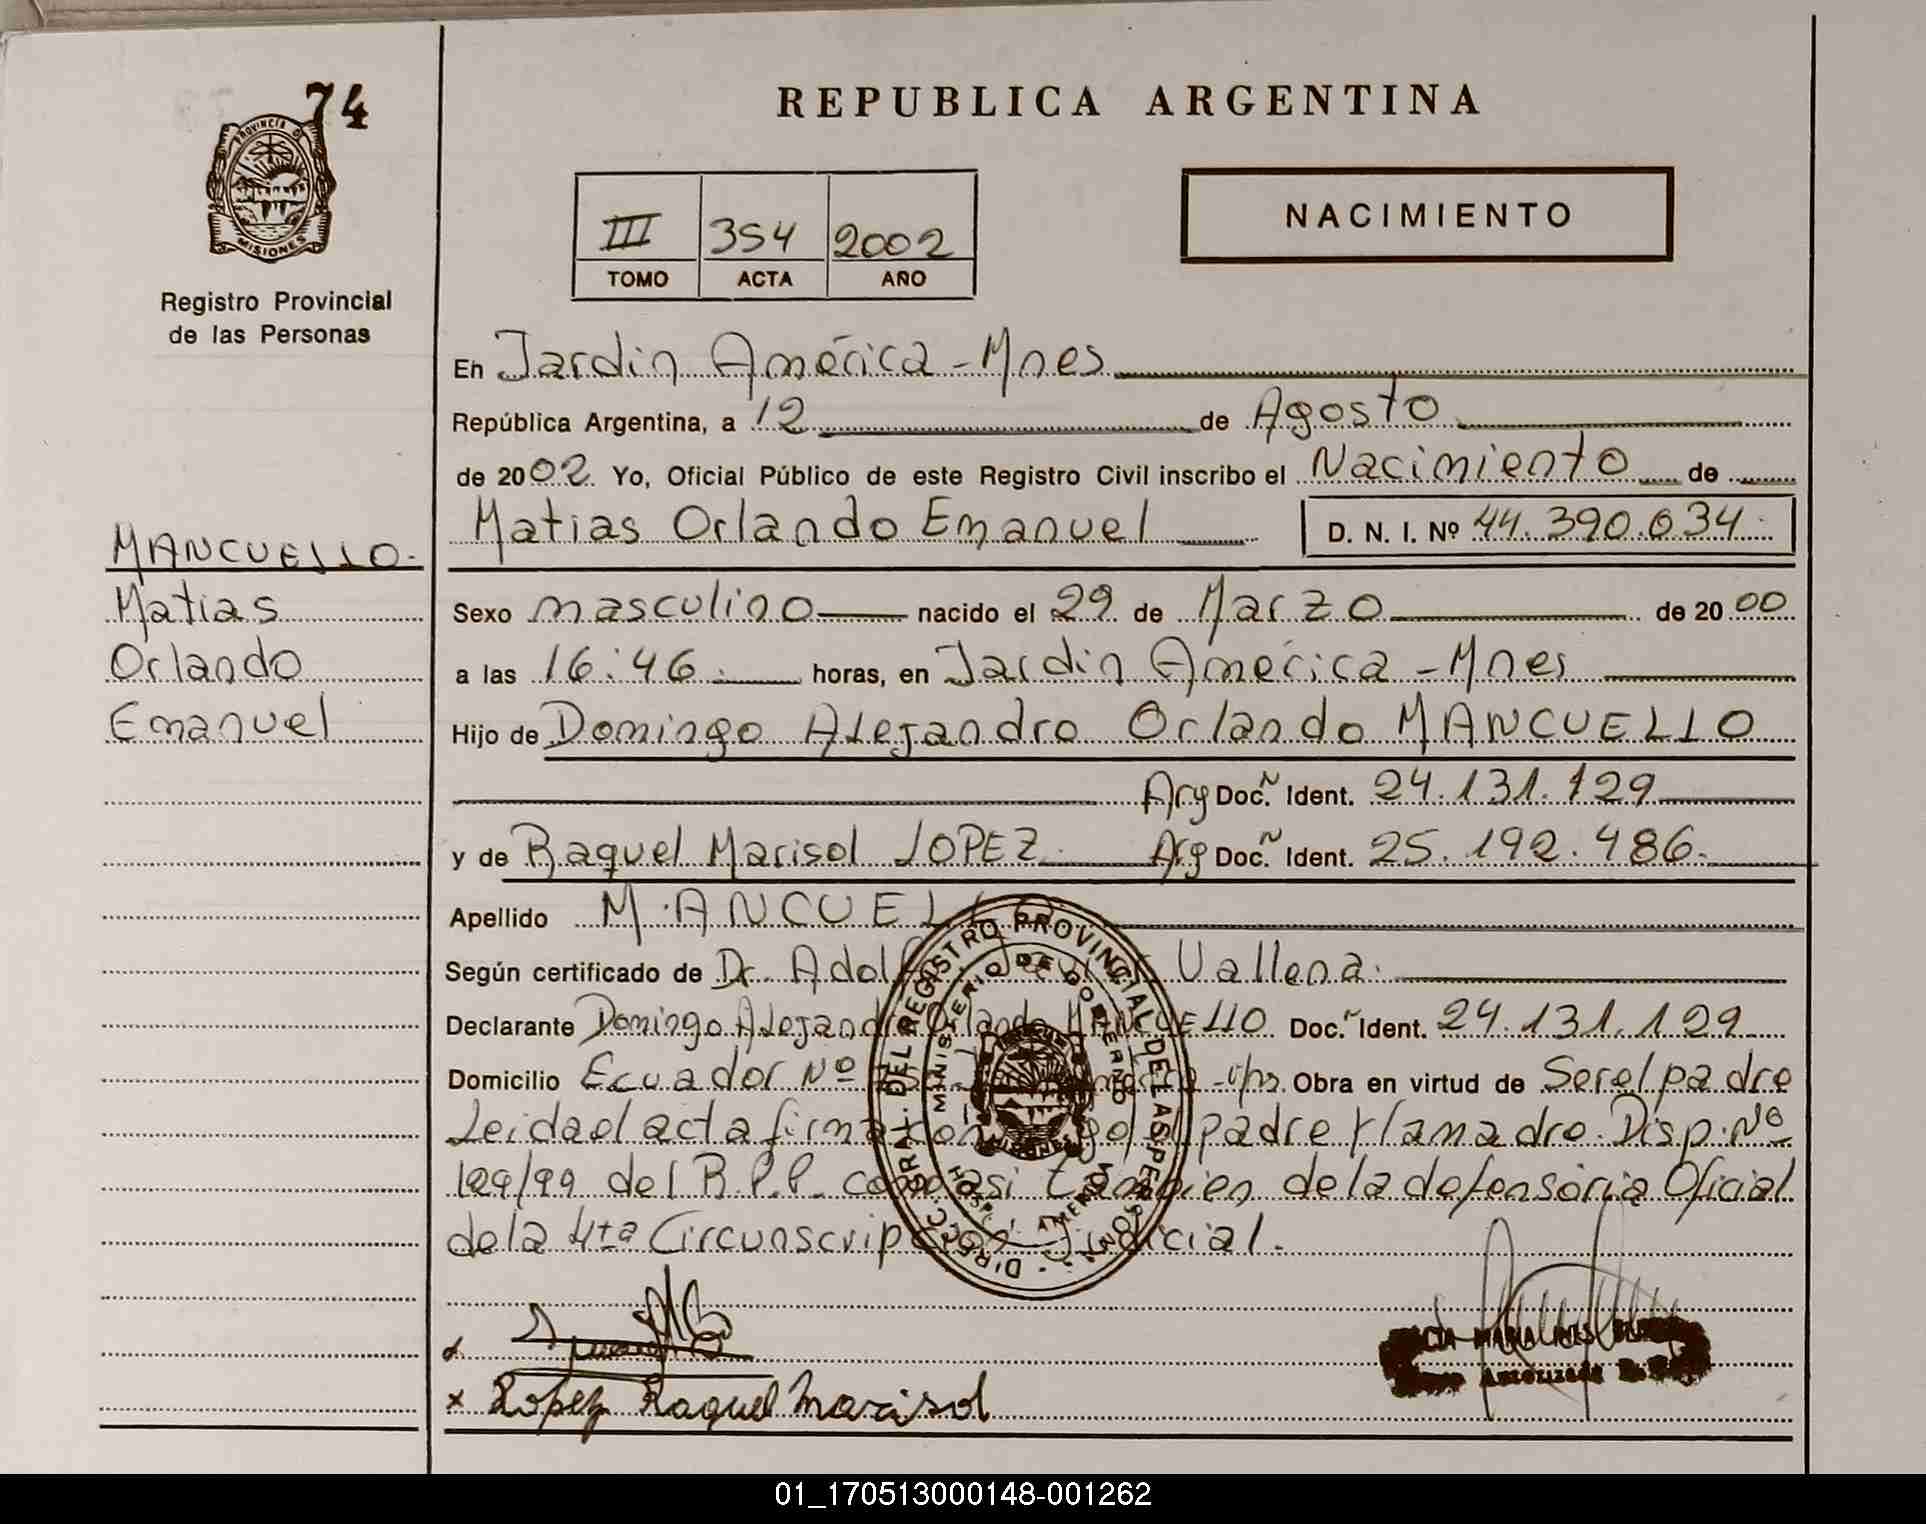 74
PROVINCIA DE
MISIONES
Registro Provincial
de las Personas
REPUBLICA ARGENTINA
III 354 2002
TOMO ACTA AÑO
NACIMIENTO
En Jardin América - Mnes
República Argentina, a 12 de Agosto
de 2002. Yo, Oficial Público de este Registro Civil inscribo el Nacimiento de
Matias Orlando Emanuel D. N. I. Nº 44.390.634
MANCUELLO.
Matias
Orlando
Emanuel
Sexo masculino nacido el 29 de Marzo de 2000
a las 16:46. horas, en Jardin América - Mnes
Hijo de Domingo Alejandro Orlando MANCUELLO
Arg Doc. Ident. 24.131.129
y de Raquel Marisol LOPEZ Arg Doc. Ident. 25.192.486.
Apellido MANCUELLO
Según certificado de Dr. Vallena.
Declarante Domingo Alejandro Orlando MANCUELLO Doc. Ident. 24.131.129
Domicilio Ecuador Nº Obra en virtud de Ser el padre
Leida el acta firma padre y la madre. Disp. Nº
129/99 del R.P.P. como asi tambien de la defensoria Oficial
de la 4ta Circunscripcion Judicial.
DIRECC. GRAL. DEL REGISTRO PROVINCIAL DE LAS PERSONAS
MINISTERIO DE GOBIERNO
x Lopez Raquel Marisol
MARIA INES
01_170513000148-001262